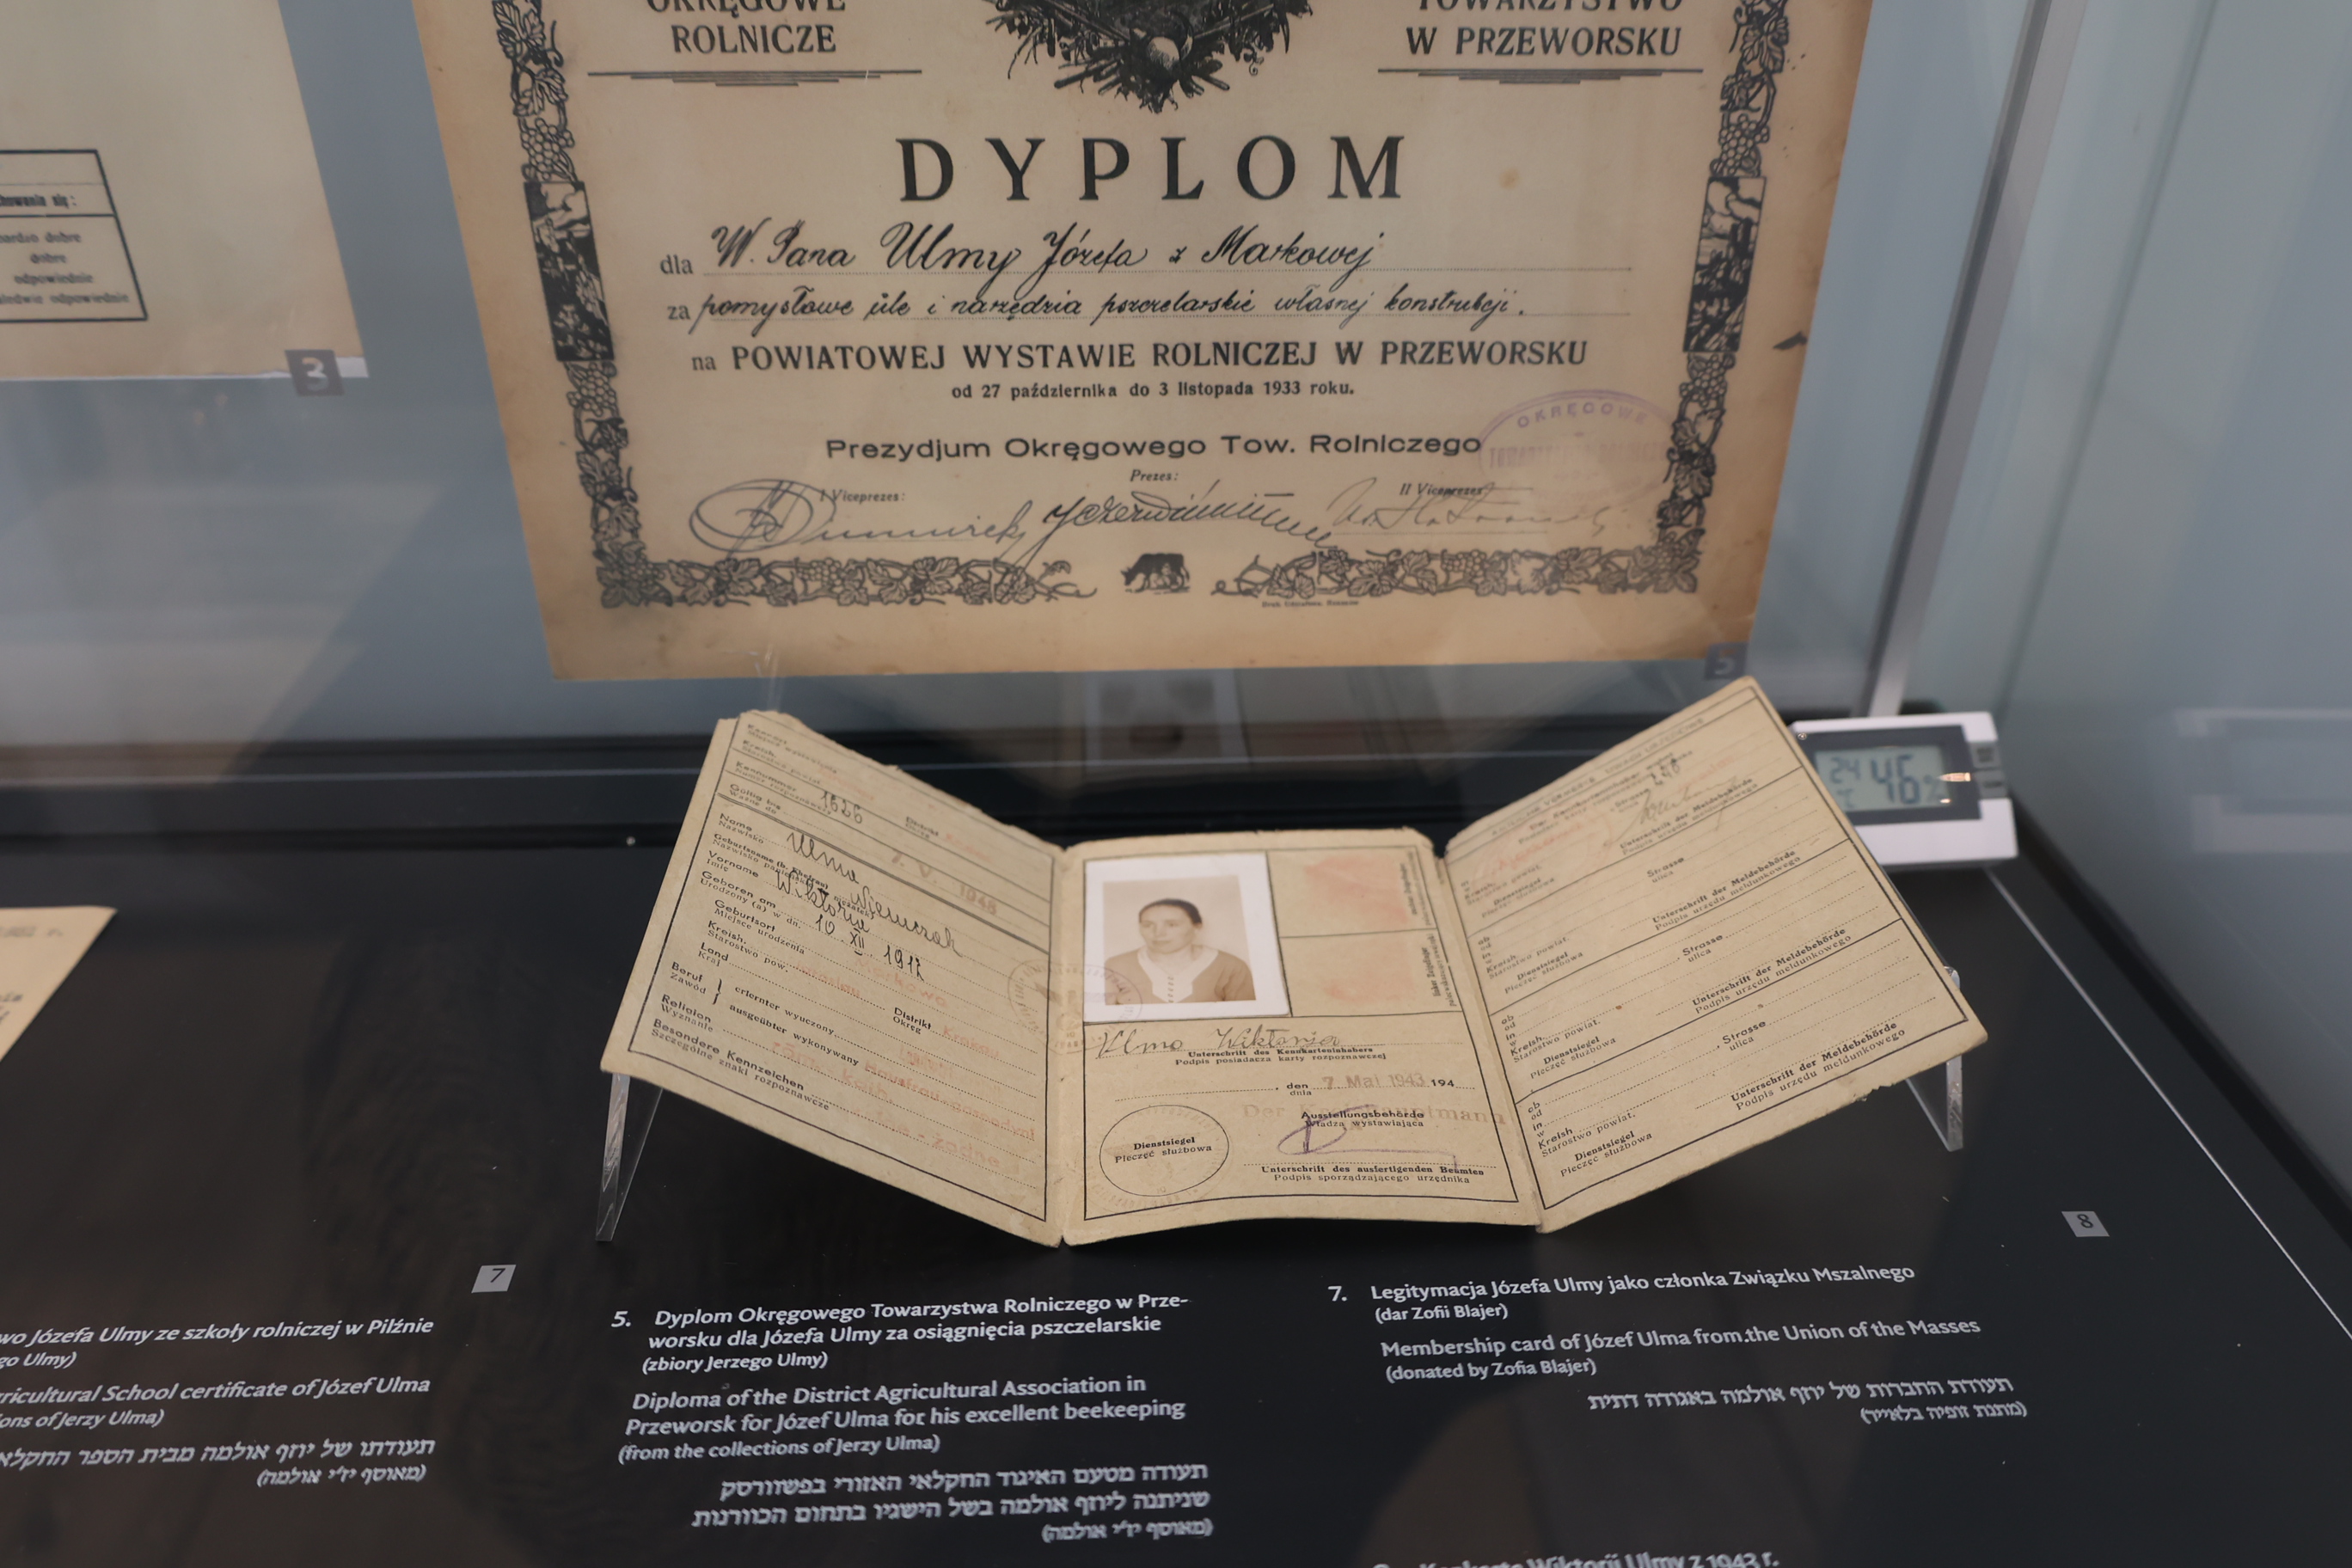 OKRĘGOWE
ROLNICZE
TOWARZYSTWO
W PRZEWORSKU
DYPLOM
dla W. Pana Ulmy Józefa z Markowej
za pomysłowe ule i narzędzia pszczelarskie własnej konstrukcji.
na POWIATOWEJ WYSTAWIE ROLNICZEJ W PRZEWORSKU
od 27 października do 3 listopada 1933 roku.
Prezydjum Okręgowego Tow. Rolniczego
Prezes:
I Viceprezes:
II Viceprezes
OKRĘGOWE
dobre
odpowiednie
odpowiednie
3
5
24
46
Kennummer 1626
Gültig bis
Ważne do
1. V. 1948
Name
Nazwisko
Ulma
Wiemczak
Vorname
Imię
Wiktoria
Geboren am
Urodzony (a) w dn.
10 XII 1912
Geburtsort
Miejsce urodzenia
Kreish.
Starostwo pow.
Distrikt
Okręg
Krakau
Land
Kraj
Beruf
Zawód
erlernter wyuczony
ausgeübter wykonywany
Hausfrau-gospodyni
Religion
Wyznanie
röm. kath.
Besondere Kennzeichen
Szczególne znaki rozpoznawcze
żadne
Ulma Wiktoria
Unterschrift des Kennkarteninhabers
Podpis posiadacza karty rozpoznawczej
, den 7. Mai 1943 194
dnia
Der Kreishauptmann
Ausstellungsbehörde
Władza wystawiająca
Dienstsiegel
Pieczęć służbowa
Unterschrift des ausfertigenden Beamten
Podpis sporządzającego urzędnika
Unterschrift der Meldebehörde
Podpis urzędu meldunkowego
Strasse
ulica
Dienstsiegel
Pieczęć służbowa
Unterschrift der Meldebehörde
Podpis urzędu meldunkowego
ob
od
in
w
Kreish.
Starostwo powiat.
Strasse
ulica
Dienstsiegel
Pieczęć służbowa
Unterschrift der Meldebehörde
Podpis urzędu meldunkowego
ob
od
in
w
Kreish.
Starostwo powiat.
Strasse
ulica
Dienstsiegel
Pieczęć służbowa
Unterschrift der Meldebehörde
Podpis urzędu meldunkowego
7
8
Józefa Ulmy ze szkoły rolniczej w Pilźnie
Ulmy)
Agricultural School certificate of Józef Ulma
of Jerzy Ulma)
תעודתו של יוזף אולמה מבית הספר
(מאוסף יז'י אולמה)
5. Dyplom Okręgowego Towarzystwa Rolniczego w Prze-
worsku dla Józefa Ulmy za osiągnięcia pszczelarskie
(zbiory Jerzego Ulmy)
Diploma of the District Agricultural Association in
Przeworsk for Józef Ulma for his excellent beekeeping
(from the collections of Jerzy Ulma)
תעודה מטעם האיגוד החקלאי האזורי בפשוורסק
שניתנה ליוזף אולמה בשל הישגיו בתחום הכוורנות
(מאוסף יז'י אולמה)
7. Legitymacja Józefa Ulmy jako członka Związku Mszalnego
(dar Zofii Blajer)
Membership card of Józef Ulma from the Union of the Masses
(donated by Zofia Blajer)
תעודת החברות של יוזף אולמה באגודה דתית
(מתנת זופיה בלאייר)
Wiktorii Ulmy z 1943 r.